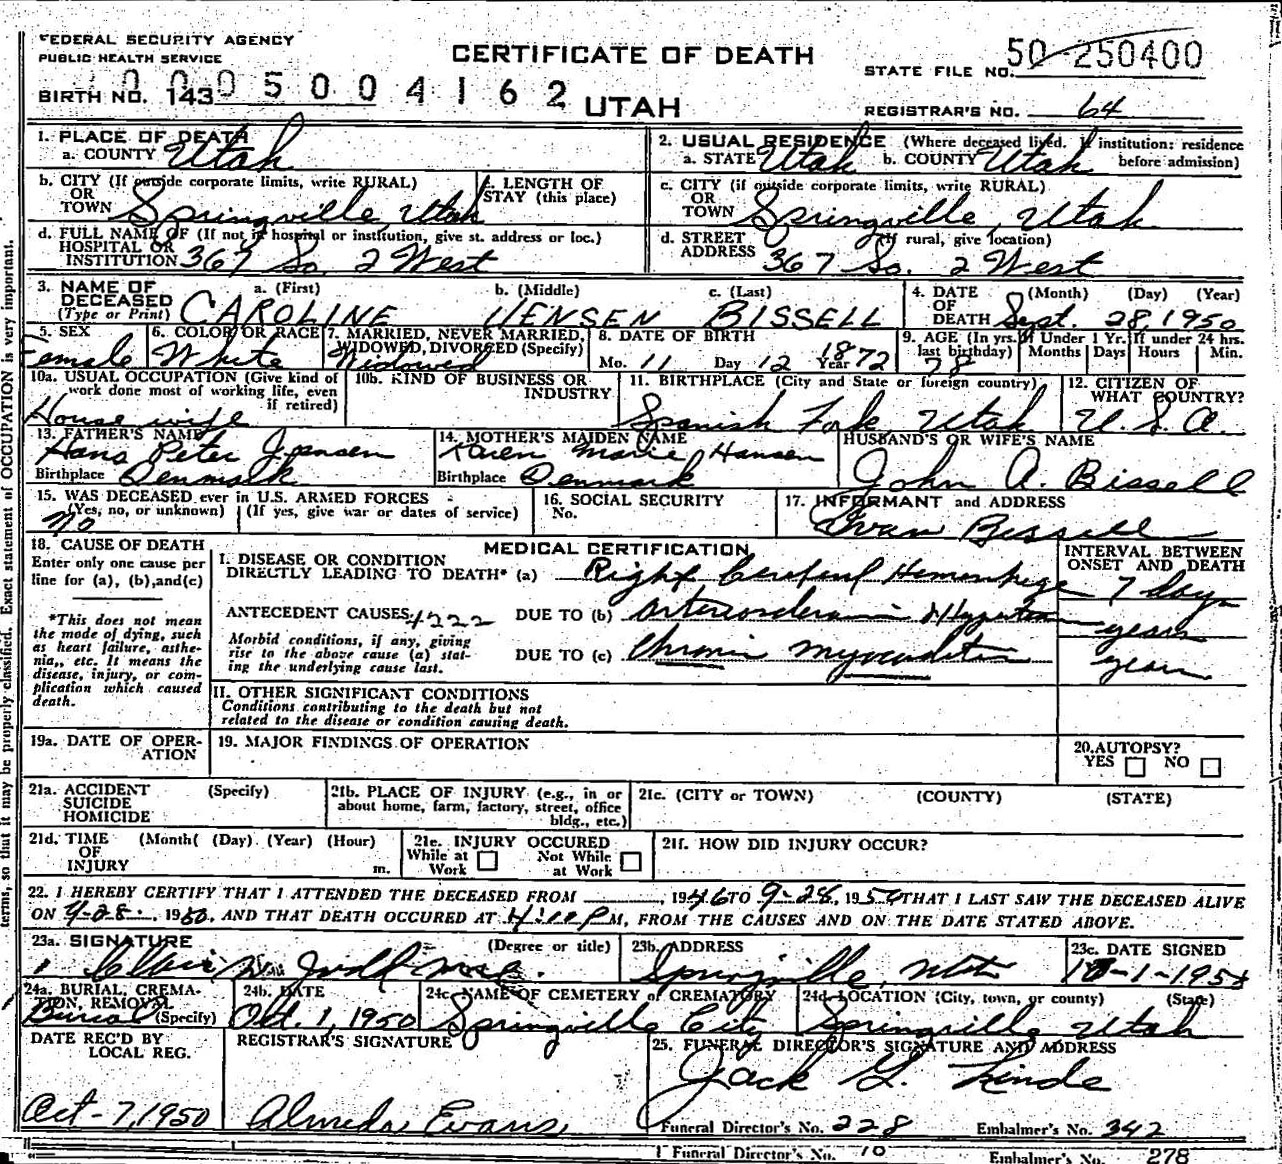 FEDERAL SECURITY AGENCY
PUBLIC HEALTH SERVICE
CERTIFICATE OF DEATH
STATE FILE NO. 50-250400
BIRTH NO. 143 0005004162
UTAH
REGISTRAR'S NO. 64
1. PLACE OF DEATH
a. COUNTY Utah
2. USUAL RESIDENCE (Where deceased lived. If institution: residence before admission)
a. STATE Utah b. COUNTY Utah
b. CITY (If outside corporate limits, write RURAL) OR TOWN Springville, Utah
c. LENGTH OF STAY (this place)
c. CITY (if outside corporate limits, write RURAL) OR TOWN Springville, Utah
d. FULL NAME OF (If not in hospital or institution, give st. address or loc.) HOSPITAL OR INSTITUTION 367 So. 2 West
d. STREET ADDRESS (If rural, give location) 367 So. 2 West
3. NAME OF DECEASED (Type or Print)
a. (First) b. (Middle) c. (Last)
CAROLINE JENSEN BISSELL
4. DATE OF DEATH (Month) (Day) (Year)
Sept. 28, 1950
5. SEX Female
6. COLOR OR RACE White
7. MARRIED, NEVER MARRIED, WIDOWED, DIVORCED (Specify) Widowed
8. DATE OF BIRTH
Mo. 11 Day 12 Year 1872
9. AGE (In yrs. last birthday) 78
If Under 1 Yr. Months Days
If under 24 hrs. Hours Min.
10a. USUAL OCCUPATION (Give kind of work done most of working life, even if retired)
House wife
10b. KIND OF BUSINESS OR INDUSTRY
11. BIRTHPLACE (City and State or foreign country)
Spanish Fork Utah
12. CITIZEN OF WHAT COUNTRY?
U.S.A.
13. FATHER'S NAME
Hans Peter Jensen
Birthplace Denmark
14. MOTHER'S MAIDEN NAME
Karen Marie Hansen
Birthplace Denmark
HUSBAND'S OR WIFE'S NAME
John A. Bissell
15. WAS DECEASED ever in U.S. ARMED FORCES
(Yes, no, or unknown) (If yes, give war or dates of service)
No
16. SOCIAL SECURITY No.
17. INFORMANT and ADDRESS
Bissell
18. CAUSE OF DEATH
Enter only one cause per line for (a), (b), and (c)
*This does not mean the mode of dying, such as heart failure, asthenia, etc. It means the disease, injury, or complication which caused death.
MEDICAL CERTIFICATION
INTERVAL BETWEEN ONSET AND DEATH
I. DISEASE OR CONDITION DIRECTLY LEADING TO DEATH* (a) Right Cerebral Hemorrhage 7 days
ANTECEDENT CAUSES 4222 DUE TO (b) years
Morbid conditions, if any, giving rise to the above cause (a) stating the underlying cause last.
DUE TO (c) Chronic myocarditis years
II. OTHER SIGNIFICANT CONDITIONS
Conditions contributing to the death but not related to the disease or condition causing death.
19a. DATE OF OPERATION
19. MAJOR FINDINGS OF OPERATION
20. AUTOPSY?
YES NO
21a. ACCIDENT SUICIDE HOMICIDE (Specify)
21b. PLACE OF INJURY (e.g., in or about home, farm, factory, street, office bldg., etc.)
21c. (CITY or TOWN) (COUNTY) (STATE)
21d. TIME OF INJURY (Month( (Day) (Year) (Hour) m.
21e. INJURY OCCURED
While at Work Not While at Work
21f. HOW DID INJURY OCCUR?
22. I HEREBY CERTIFY THAT I ATTENDED THE DECEASED FROM , 1946 TO 9-28, 1950 THAT I LAST SAW THE DECEASED ALIVE
ON 9-28-, 1950, AND THAT DEATH OCCURED AT 4:00 P M, FROM THE CAUSES AND ON THE DATE STATED ABOVE.
23a. SIGNATURE (Degree or title)
23b. ADDRESS
Springville, Utah
23c. DATE SIGNED
10-1-1950
24a. BURIAL, CREMATION, REMOVAL (Specify)
Burial
24b. DATE
Oct. 1, 1950
24c. NAME OF CEMETERY or CREMATORY
Springville City
24d. LOCATION (City, town, or county) (State)
Springville Utah
DATE REC'D BY LOCAL REG.
Oct-7, 1950
REGISTRAR'S SIGNATURE
Almeda Evans
25. FUNERAL DIRECTOR'S SIGNATURE AND ADDRESS
Jack G. Linde
Funeral Director's No. 228 Embalmer's No. 342
Funeral Director's No. 10 Embalmer's No. 278
terms, so that it may be properly classified. Exact statement of OCCUPATION is very important.